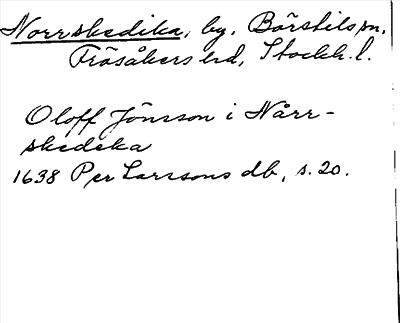 Norrskedika, by, Börstils sn,
Frösåkers hd, Stockh. l.
Oloff Jönsson i Nårr-
skedeka
1638 Per Larssons db, s. 20.